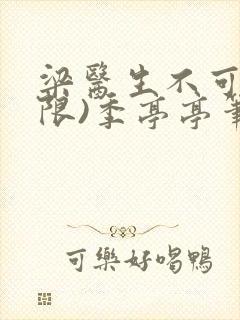 梁醫生不可
限)季亭亭筆
可樂好喝鴨